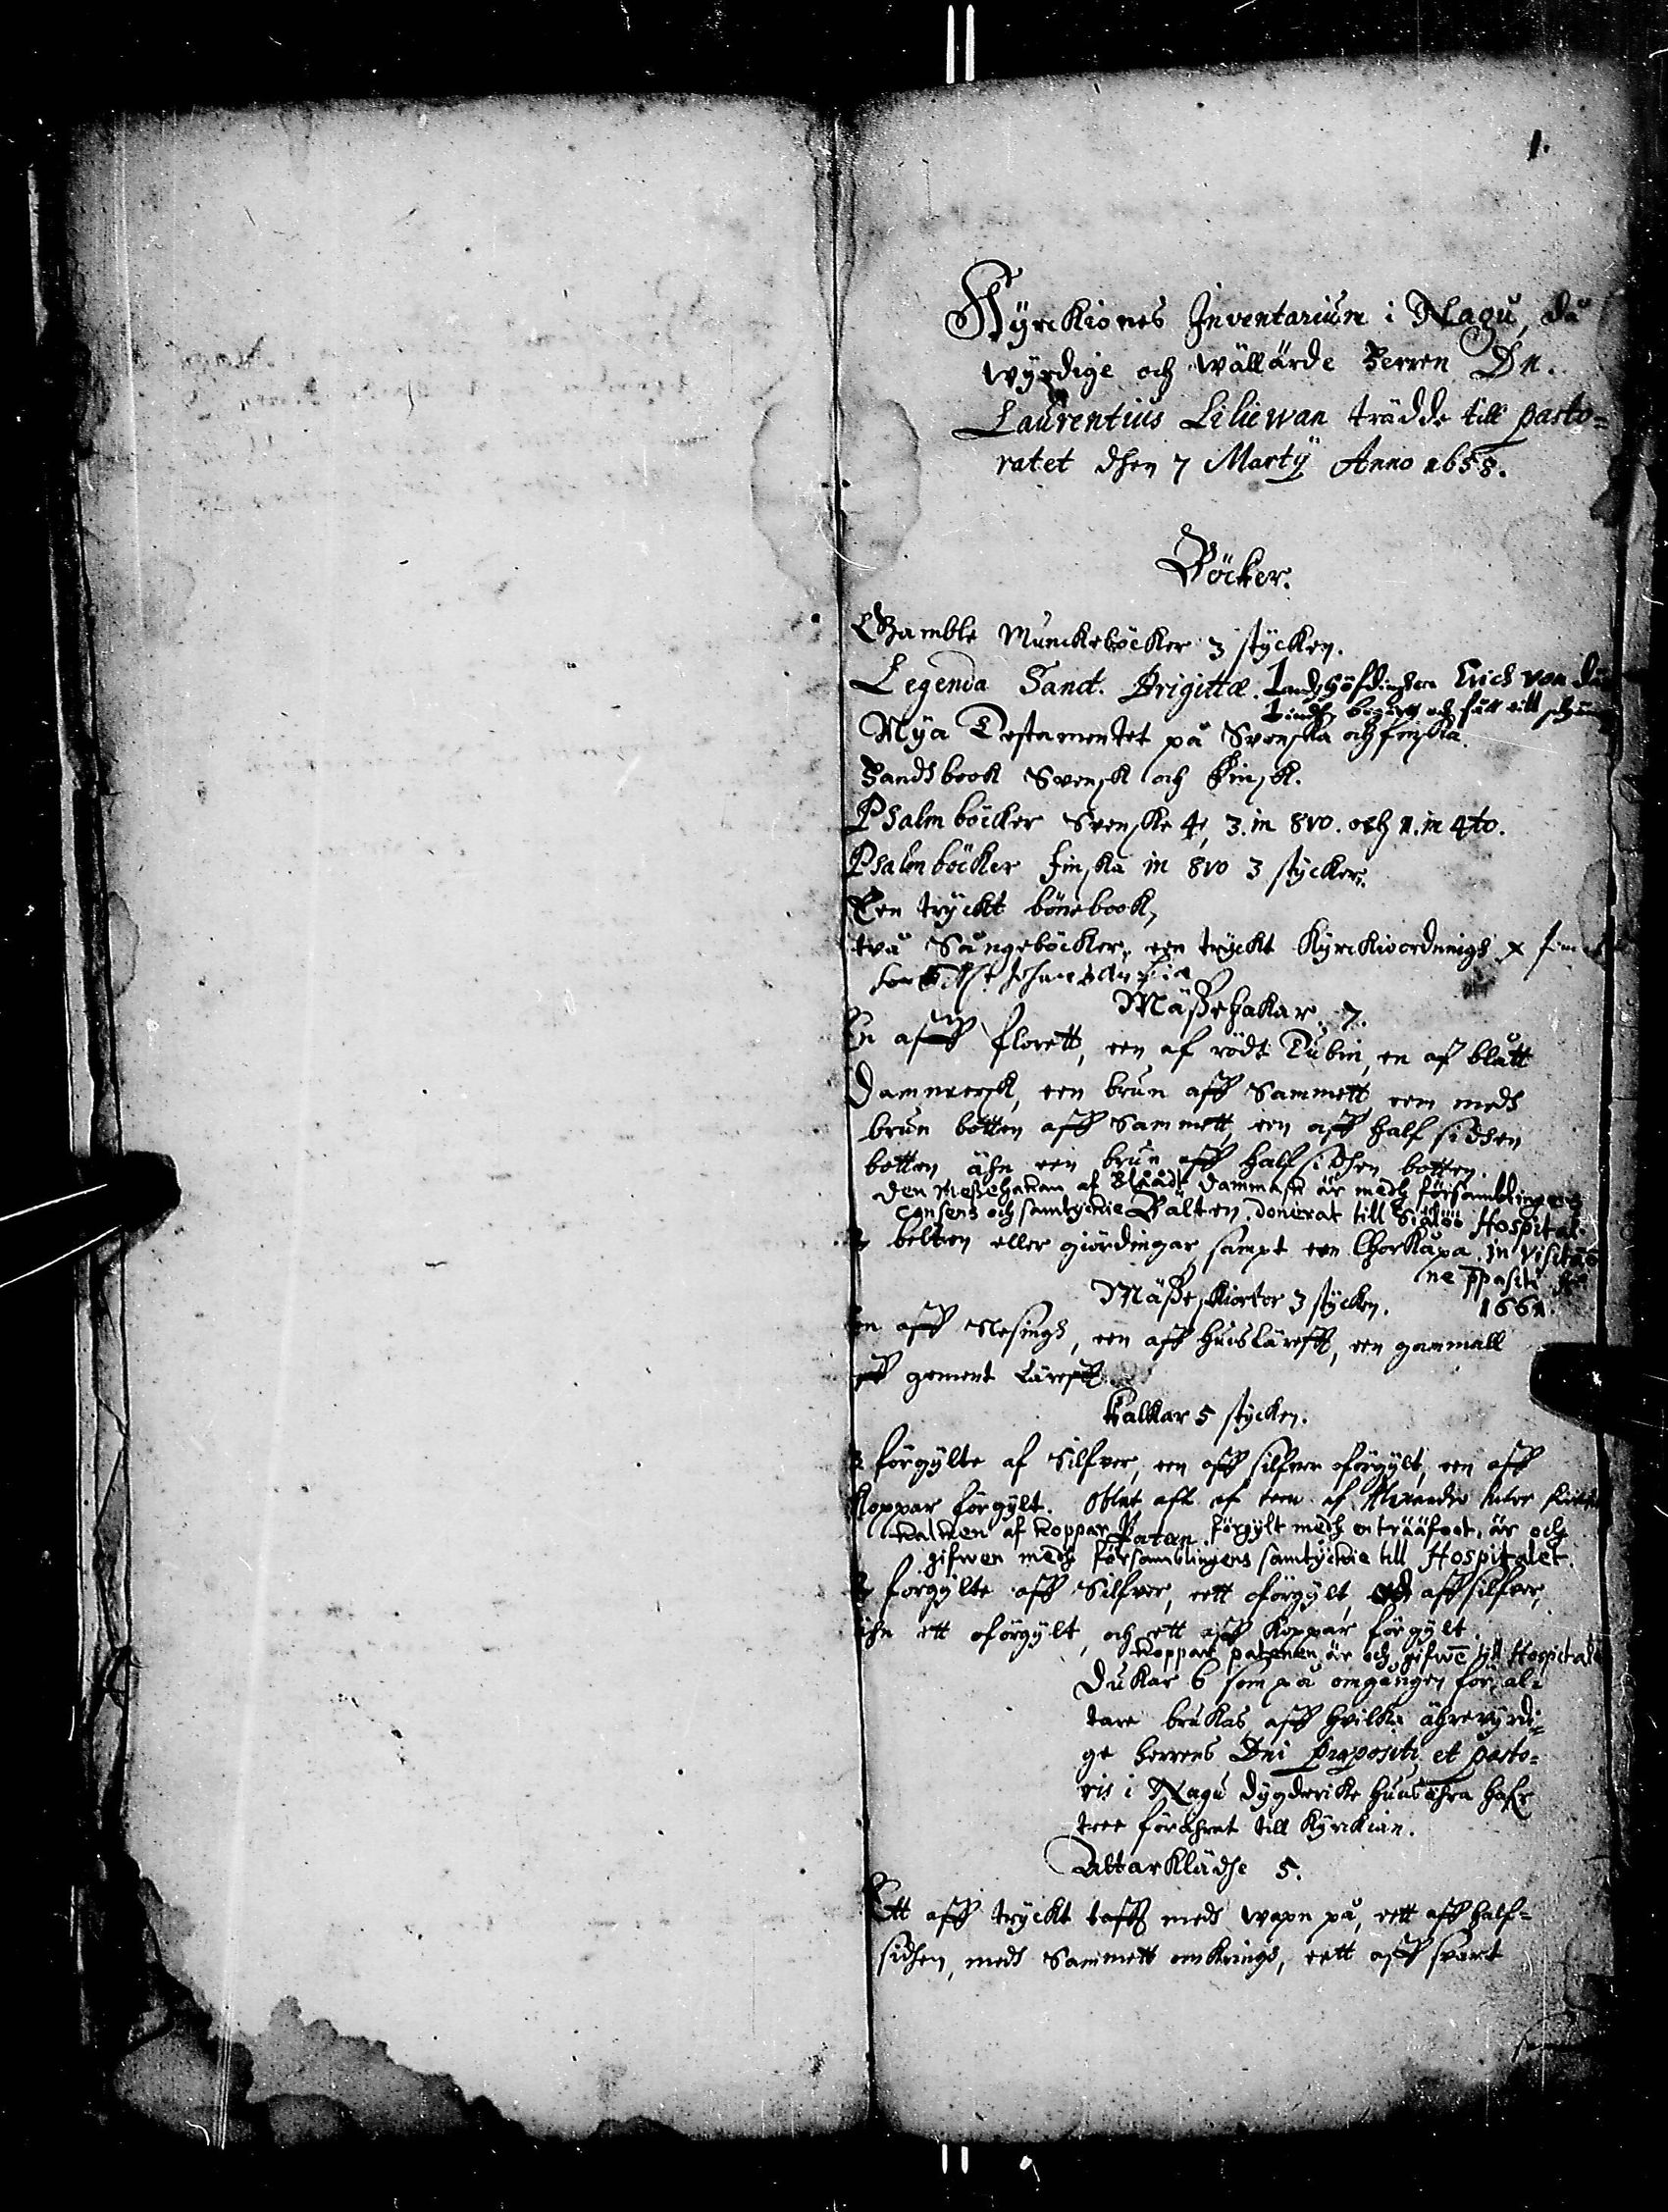 1.
Kyrckiones Inventarium i Nagu, då
wyrdige och wällärde Herren Dn.
Laurentius Liliewan trädde till pasto=
ratet dhen 7 Martij Anno 1658.
Böcker.
Gamble Munckeböcker 3 stycken.
Legenda Sanct. Brigittæ. Landzhöfdingen Erich von der
Linde begärt och fått till
Nya Testamentet på Svenska och finska.
Handbook Svensk och Finsk.
Psalmböcker Svenske 4, 3. in 8vo. och 1. in 4to.
Psalmböcker finska in 8vo 3 stycker.
Een tryckt bönebook,
två Sångeböcker, een tryckt Kyrckioordningh
Mässehakar 7.
En aff florett, een af rödt Tubin, en af blått
Dammersk, een brun aff Sammett een medh
brun botten aff Sammett, een aff half sidhen
botten ähn een brun aff halfsidhen botten.
Den Messehakan af Blåådt Dammask är medh församblingens
consens och samtyckie donerat till Siälöö Hospital
Bälten.
belten eller giördingar sampt een Chorkåpa. in Visitatio
ne ppositi
1661.
Mässeskiortor 3 stycken.
En aff Slesingh, een aff huuslärefft, een gammall
aff gement Lärefft
Kalkar 5 stycken.
3 förgylte af Silfver, een aff silfver oförgylt, een aff
Koppar förgylt. Oblat ask af teen af Alexandro
kalken af koppar förgylt medh en trääfoot, är och
Pateen.
gifwen medh församblingens samtyckie till Hospitalet.
förgylte aff Silfver, ett oförgylt, aff silfver,
ähn ett oförgylt, och ett aff Koppar förgylt.
koppar patenen är och gifwe till Hospitalet
Dukar 6 som på omgången för al=
tare brukas aff hvilka ährevyrdi=
ge herrens Dni præpositi et pasto=
ris i Nagu dygderike huusehra hafr
tree förährat till Kyrckian.
Altarklädhe 5.
Ett aff tryckt tafft medh wapn på, ett aff half=
sidhen, medh Sammett omkringh, ett aff svart